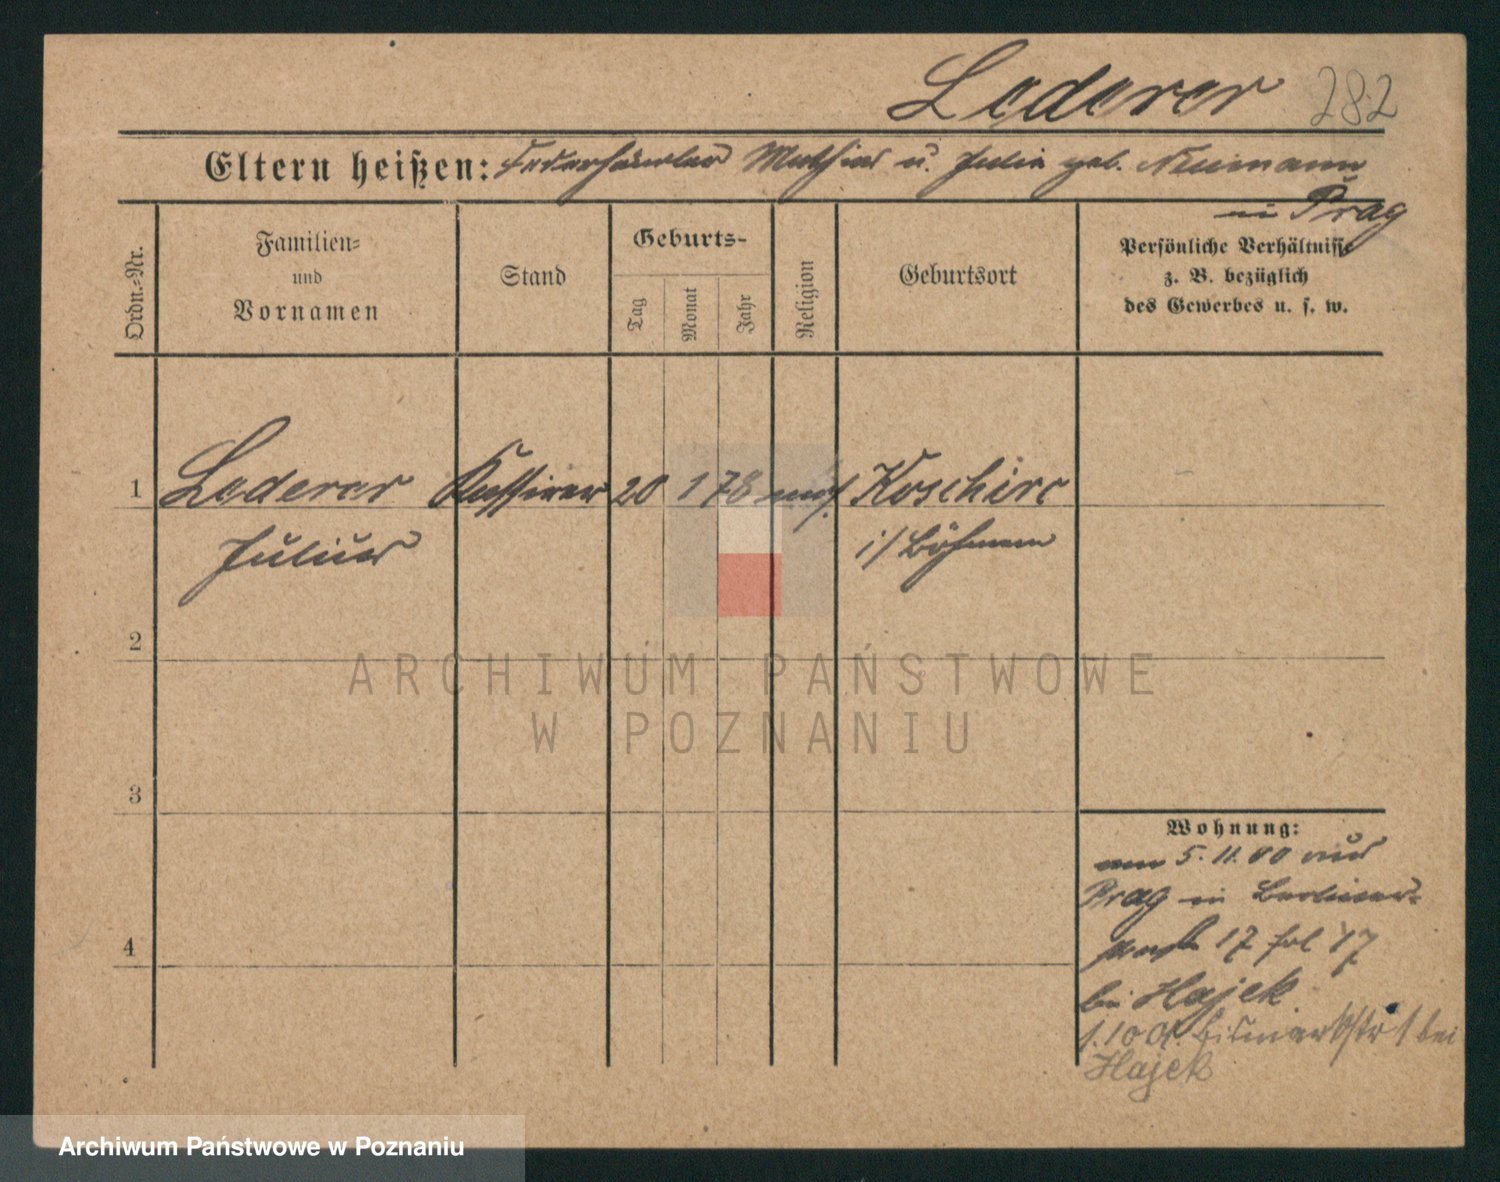 Lederer 282
Eltern heißen: Federhändler Mathias u. Julie geb. Neumann
in Prag
Ordn.-Nr.
Familien-
und
Vornamen
Stand
Geburts-
Tag
Monat
Jahr
Religion
Geburtsort
Persönliche Verhältnisse
z. B. bezüglich
des Gewerbes u. s. w.
1 Lederer Kassirer 20 1 78 mos. Koschirc
Julius i/ Böhmen
2
ARCHIWUM PAŃSTWOWE
W POZNANIU
3
Wohnung:
am 5. 11. 00 aus
Prag in Berliner-
4
17
bei Hajek
1. 10 01 Bismarckstr 1 bei
Hajek
Archiwum Państwowe w Poznaniu